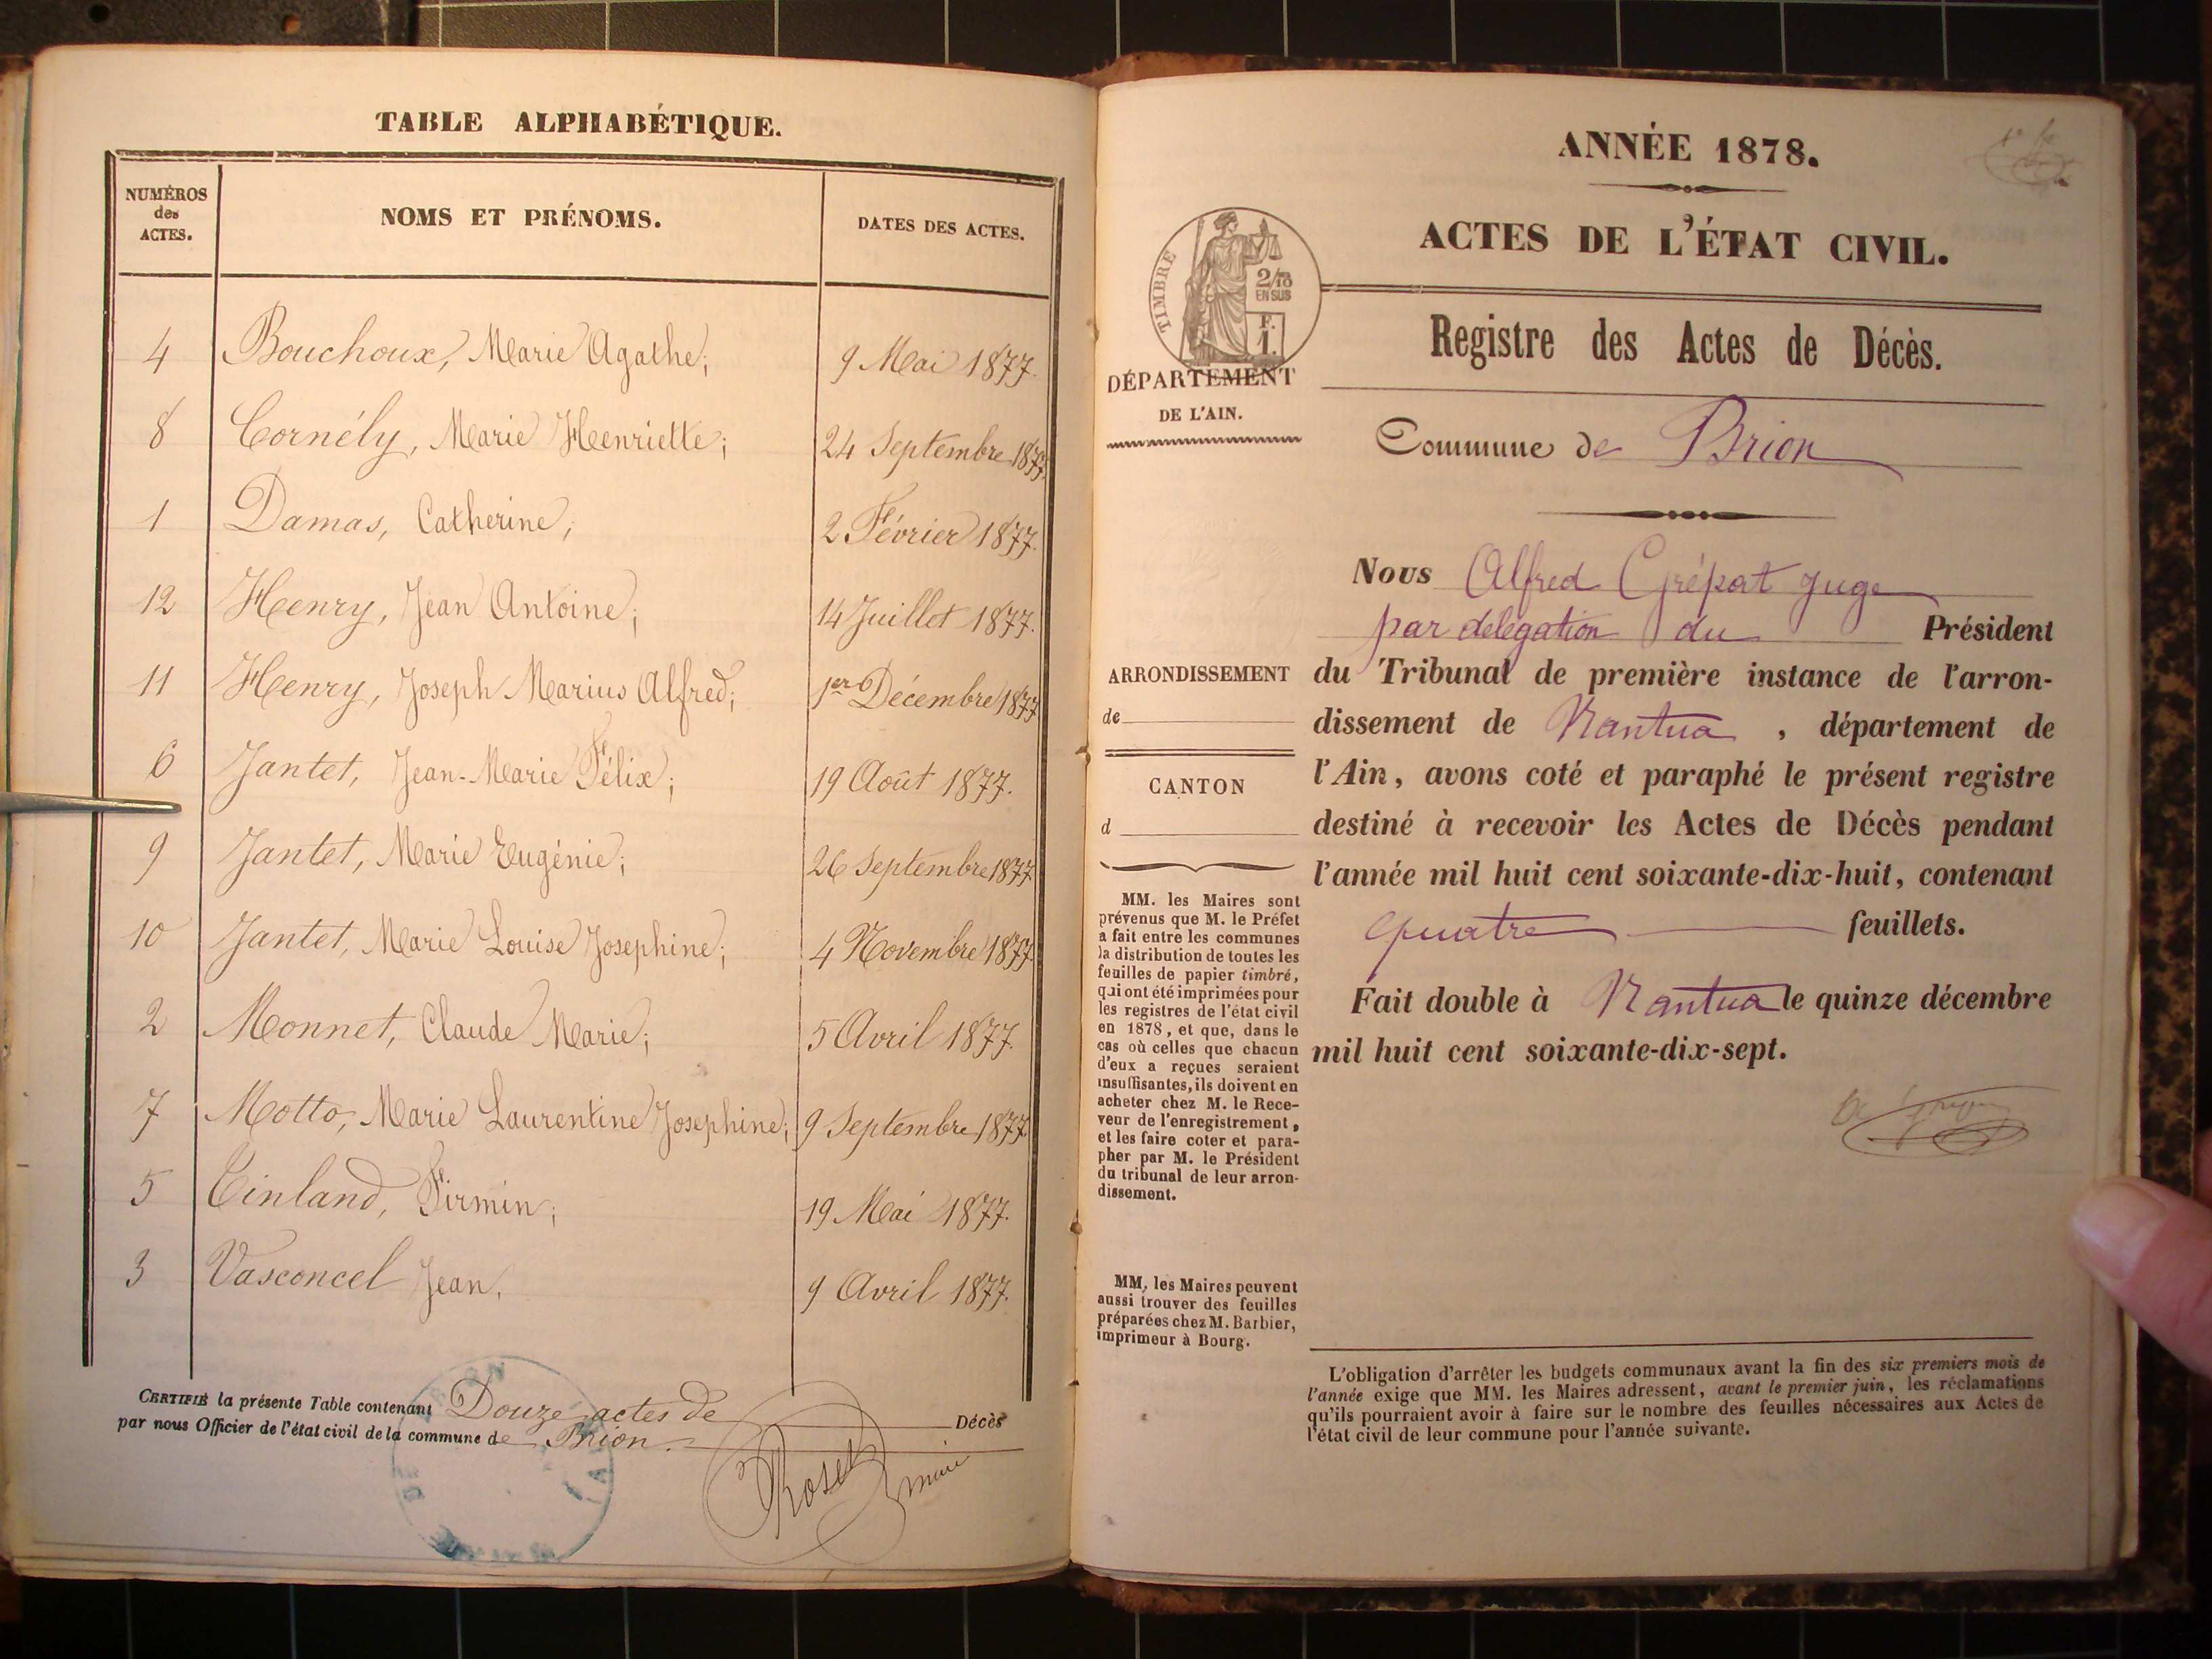 TABLE ALPHABÉTIQUE.
NUMÉROS des ACTES.
NOMS ET PRÉNOMS.
DATES DES ACTES.
4 Bouchoux, Marie Agathe; 9 Mai 1877.
8 Cornély, Marie Henriette; 24 Septembre 1877.
1 Damas, Catherine; 2 Février 1877.
12 Henry, Jean Antoine; 14 Juillet 1877.
11 Henry, Joseph Marius Alfred; 1er Décembre 1877
6 Jantet, Jean-Marie Félix; 19 Août 1877.
9 Jantet, Marie Eugénie; 26 Septembre 1877
10 Jantet, Marie Louise Josephine; 4 Novembre 1877.
2 Monnet, Claude Marie; 5 Avril 1877.
7 Motto, Marie Laurentine Josephine; 9 Septembre 1877
5 Tinland, Firmin; 19 Mai 1877.
3 Vasconcel Jean, 9 Avril 1877.
CERTIFIÉ la présente Table contenant Douze actes de Décès
par nous Officier de l'état civil de la commune de Brion.
Roset maire
ANNÉE 1878.
ACTES DE L'ÉTAT CIVIL.
TIMBRE
2/10
EN SUS
F.
1.
DÉPARTEMENT
DE L'AIN.
Registre des Actes de Décès.
Commune de Brion
ARRONDISSEMENT
de
CANTON
d
MM. les Maires sont
prévenus que M. le Préfet
a fait entre les communes
la distribution de toutes les
feuilles de papier timbré,
qui ont été imprimées pour
les registres de l'état civil
en 1878, et que, dans le
cas où celles que chacun
d'eux a reçues seraient
insuffisantes, ils doivent en
acheter chez M. le Rece-
veur de l'enregistrement,
et les faire coter et para-
pher par M. le Président
du tribunal de leur arron-
dissement.
MM, les Maires peuvent
aussi trouver des feuilles
préparées chez M. Barbier,
imprimeur à Bourg.
Nous Alfred Grépat juge
par delégation du Président
du Tribunal de première instance de l'arron-
dissement de Nantua, département de
l'Ain, avons coté et paraphé le présent registre
destiné à recevoir les Actes de Décès pendant
l'année mil huit cent soixante-dix-huit, contenant
quatre feuillets.
Fait double à Nantua le quinze décembre
mil huit cent soixante-dix-sept.
L'obligation d'arrêter les budgets communaux avant la fin des six premiers mois de
l'année exige que MM. les Maires adressent, avant le premier juin, les réclamations
qu'ils pourraient avoir à faire sur le nombre des feuilles nécessaires aux Actes de
l'état civil de leur commune pour l'année suivante.